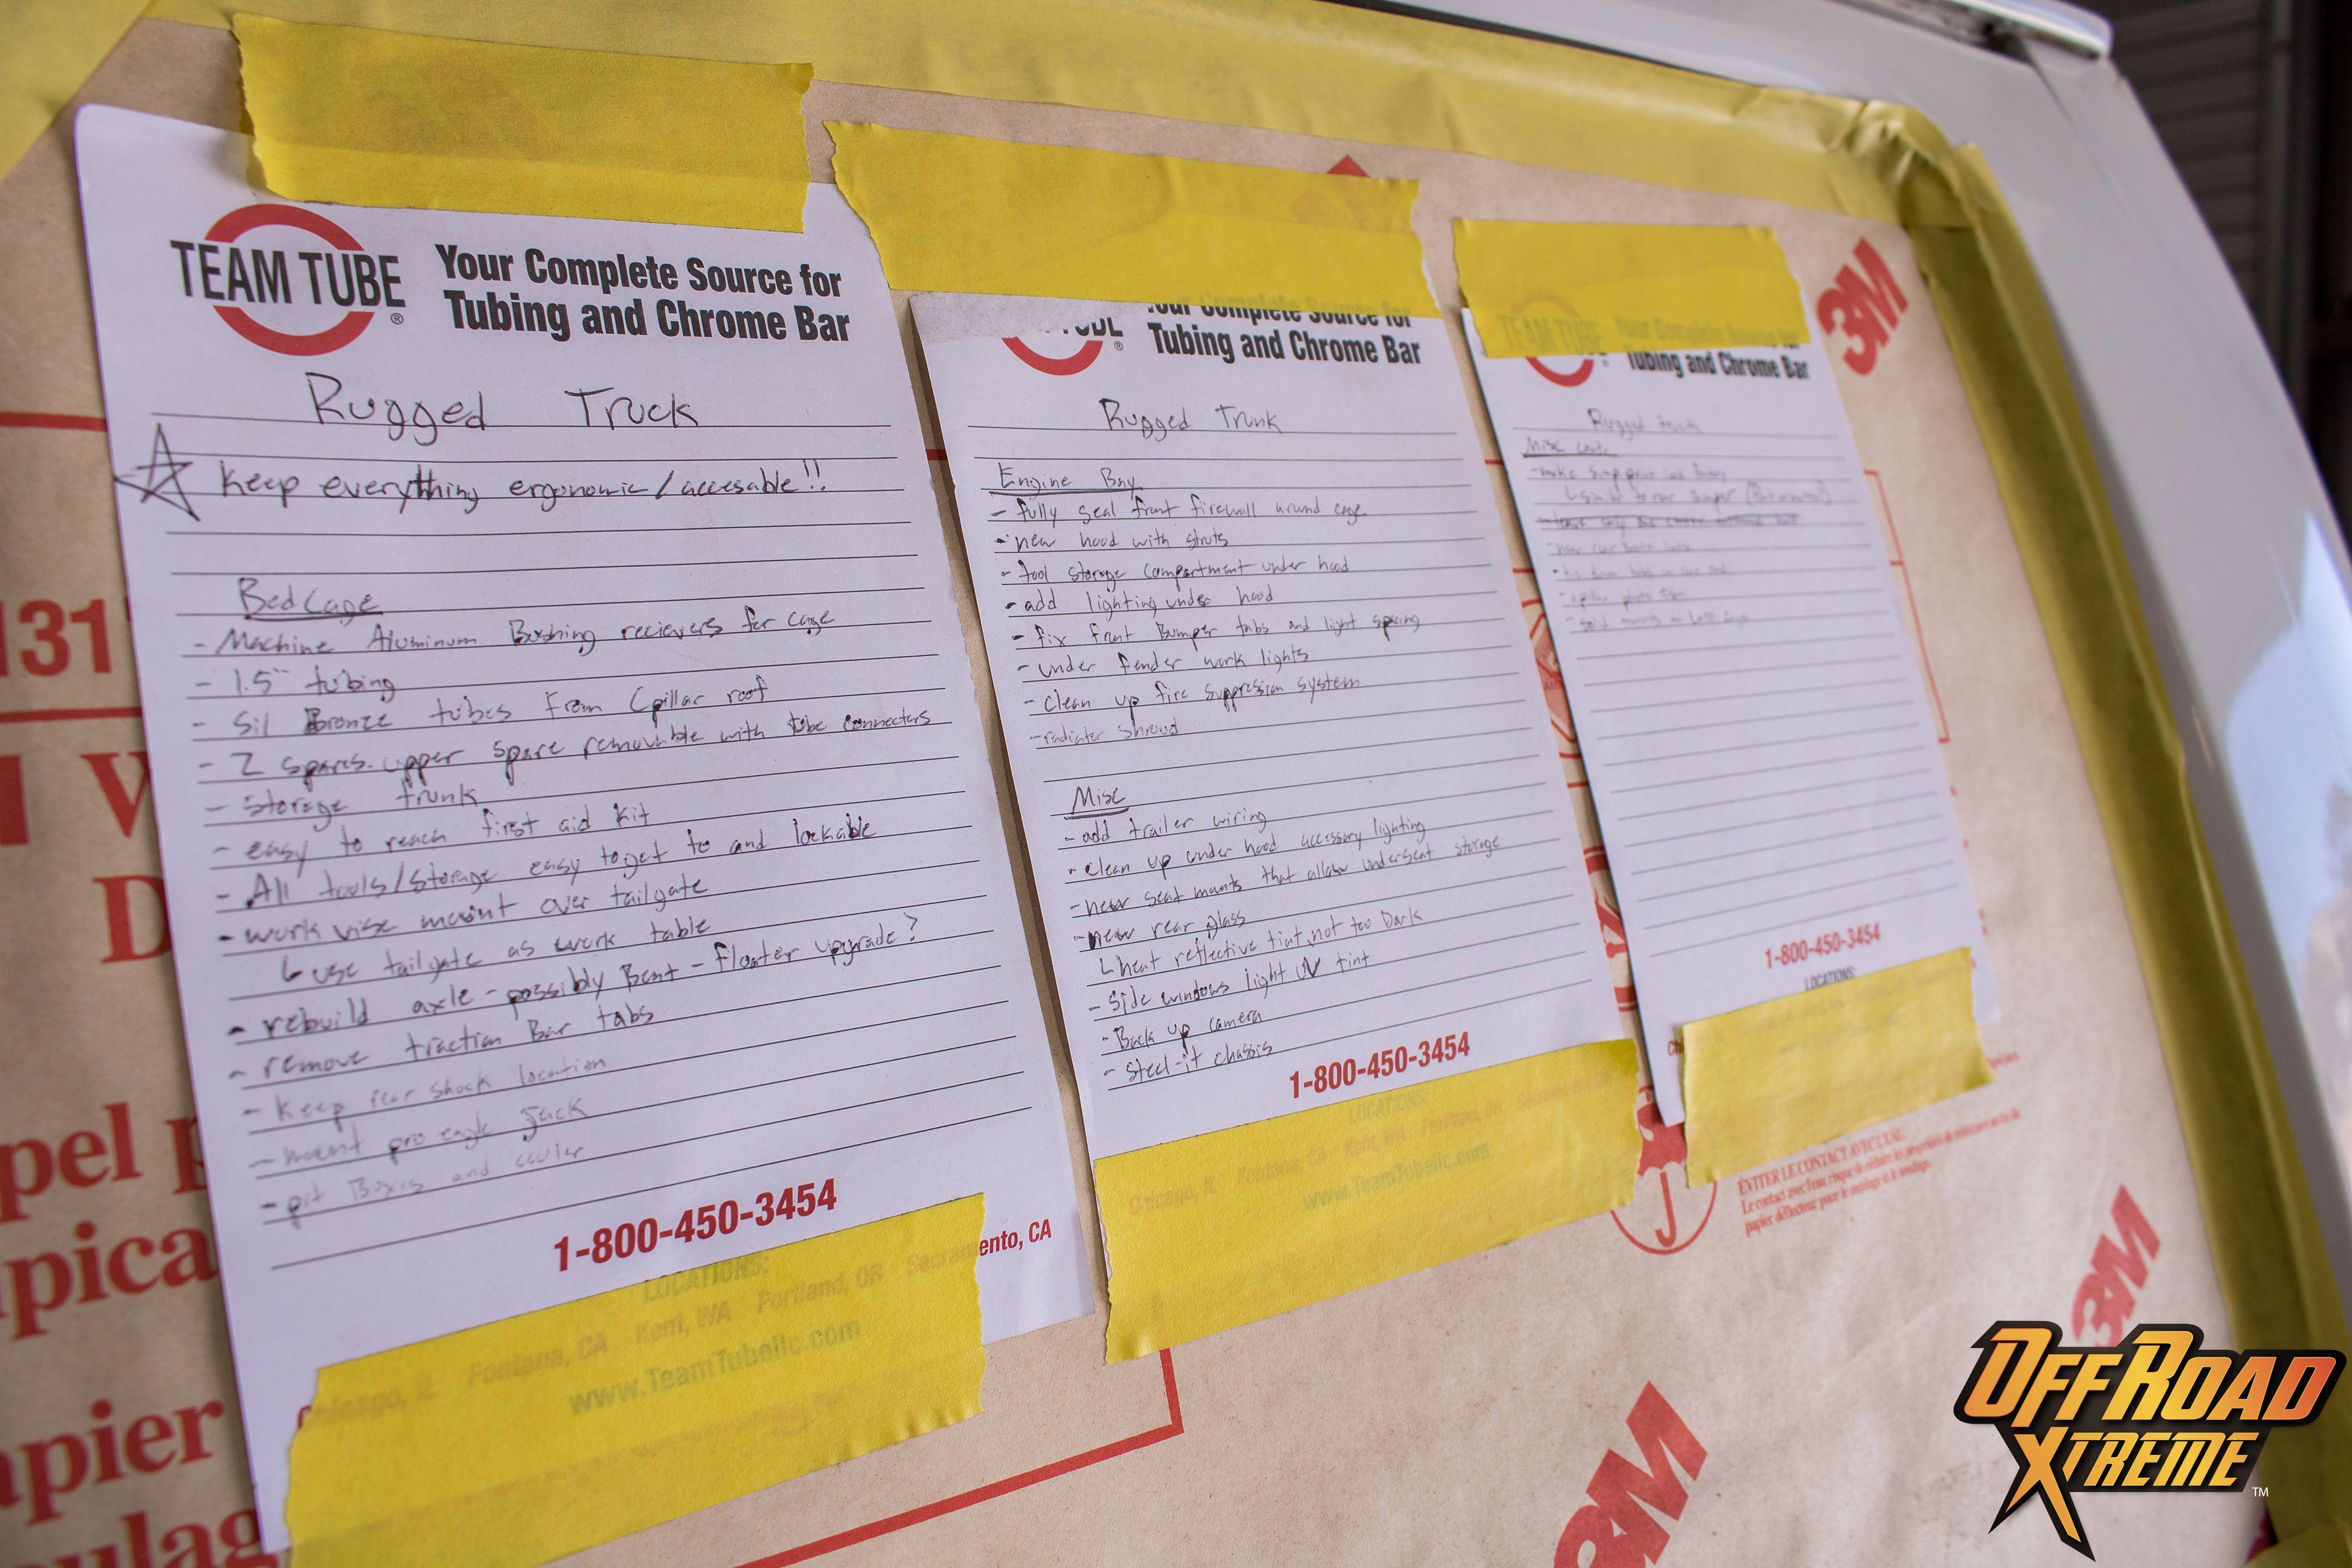 TEAM TUBE®
Your Complete Source for
Tubing and Chrome Bar
Rugged Truck
Keep everything ergonomic/accesable!!
Bed Cage
- Machine Aluminum Bushing recievers for cage
- 1.5" tubing
- Sil Bronze tubes From C pillar roof
- 2 spares- upper spare removable with tube connectors
- Storage trunk
- easy to reach first aid kit
- All tools/storage easy to get to and lockable
- work vise mount over tailgate
use tailgate as work table
- rebuild axle - possibly Bent - floater upgrade?
- remove traction Bar tabs
- Keep rear shock location
- mount pro eagle Jack
- pit Boxes and cooler
1-800-450-3454
LOCATIONS:
Chicago, IL Fontana, CA Kent, WA Portland, OR Sacramento, CA
www.TeamTubellc.com
Your Complete Source for
Tubing and Chrome Bar
Rugged Trunk
Engine Bay
- fully seal front firewall around cage
- new hood with struts
- tool storage compartment under hood
- add lighting under hood
- fix front Bumper tabs and light spacing
- under fender work lights
- clean up fire suppression system
- radiator shroud
Misc
- add trailer wiring
- clean up under hood accessory lighting
- new seat mounts that allow underseat storage
- new rear glass
heat reflective tint, not too Dark
- Side windows light UV tint
- Back up camera
- Steel-it chassis
1-800-450-3454
LOCATIONS:
Chicago, IL Fontana, CA Kent, WA Portland, OR
www.TeamTubellc.com
TEAM TUBE®
Your Complete Source for
Tubing and Chrome Bar
Rugged truck
Misc cont.
1-800-450-3454
LOCATIONS:
3M
3M
3M
131
ÉVITER LE CONTACT AVEC L'EAU.
OFF ROAD
XTREME™